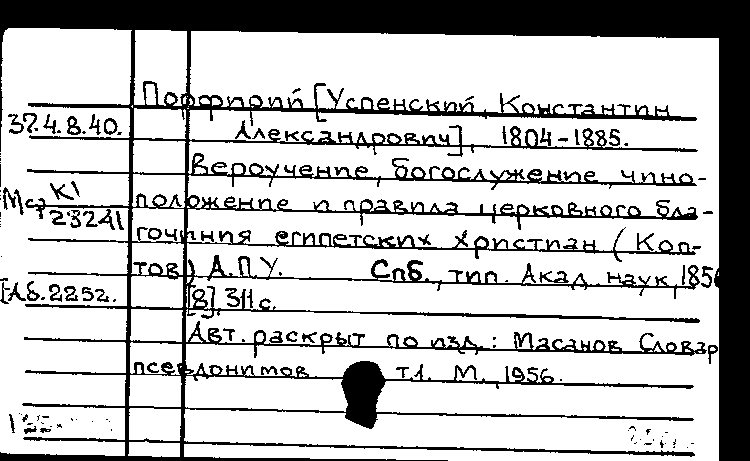 Порфирий [Успенский, Константин
37.4.8.40. Александрович], 1804-1885.
Вероучение, богослужение, чино-
К1
положение и правила церковного бла-
28241
гочиния египетских христиан (Коп-
тов) А.П.У. Спб., тип. Акад. наук, 1856
[8], 311 с.
Авт. раскрыт по изд.: Масанов Словар
псевдонимов т.1. М., 1956.